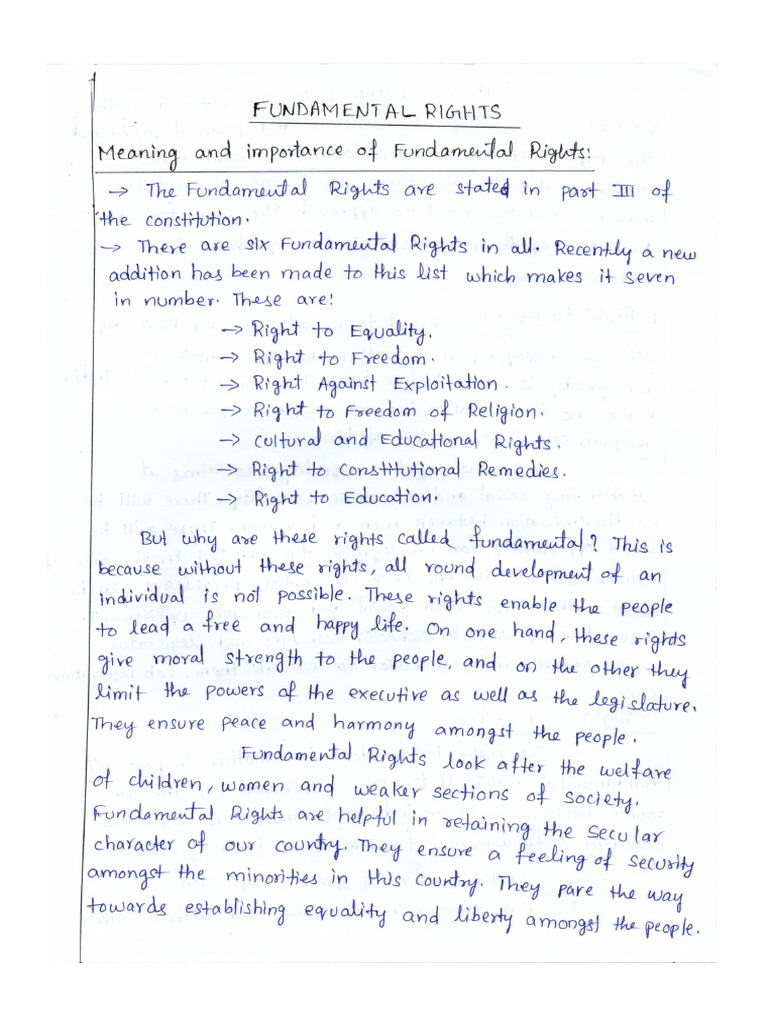 FUNDAMENTAL RIGHTS
Meaning and importance of Fundamental Rights:
→ The Fundamental Rights are stated in part III of
the constitution.
→ There are six Fundamental Rights in all. Recently a new
addition has been made to this list which makes it seven
in number. These are:
→ Right to Equality.
→ Right to Freedom.
→ Right Against Exploitation.
→ Right to Freedom of Religion.
→ Cultural and Educational Rights.
→ Right to Constitutional Remedies.
→ Right to Education.
But why are these rights called fundamental? This is
because without these rights, all round development of an
individual is not possible. These rights enable the people
to lead a free and happy life. On one hand, these rights
give moral strength to the people, and on the other they
limit the powers of the executive as well as the legislature.
They ensure peace and harmony amongst the people.
Fundamental Rights look after the welfare
of children, women and weaker sections of society.
Fundamental Rights are helpful in retaining the secular
character of our country. They ensure a feeling of security
amongst the minorities in this country. They pave the way
towards establishing equality and liberty amongst the people.